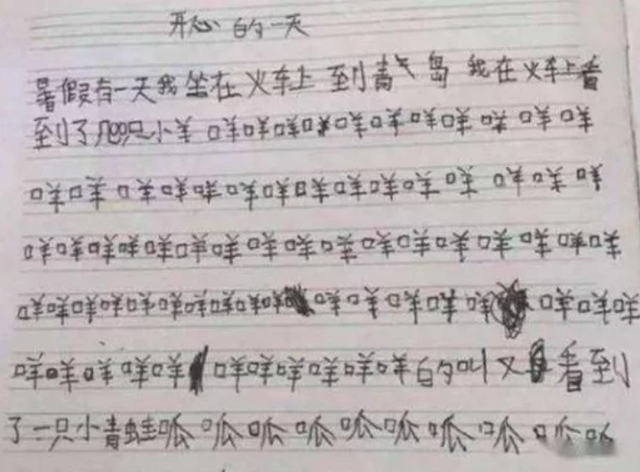 开心的一天
暑假有一天我坐在火车上到青气岛我在火车上看
到了几只小羊咩咩咩咩咩咩咩咩咩咩咩
咩咩咩咩咩咩咩咩咩咩咩咩咩咩咩
咩咩咩咩咩咩咩咩咩咩咩咩咩咩咩咩咩
咩咩咩咩咩咩咩咩咩咩咩咩咩咩咩咩咩咩
咩咩咩咩咩咩咩咩咩咩咩的叫又看到
了一只小青蛙呱呱呱呱呱呱呱呱呱呱